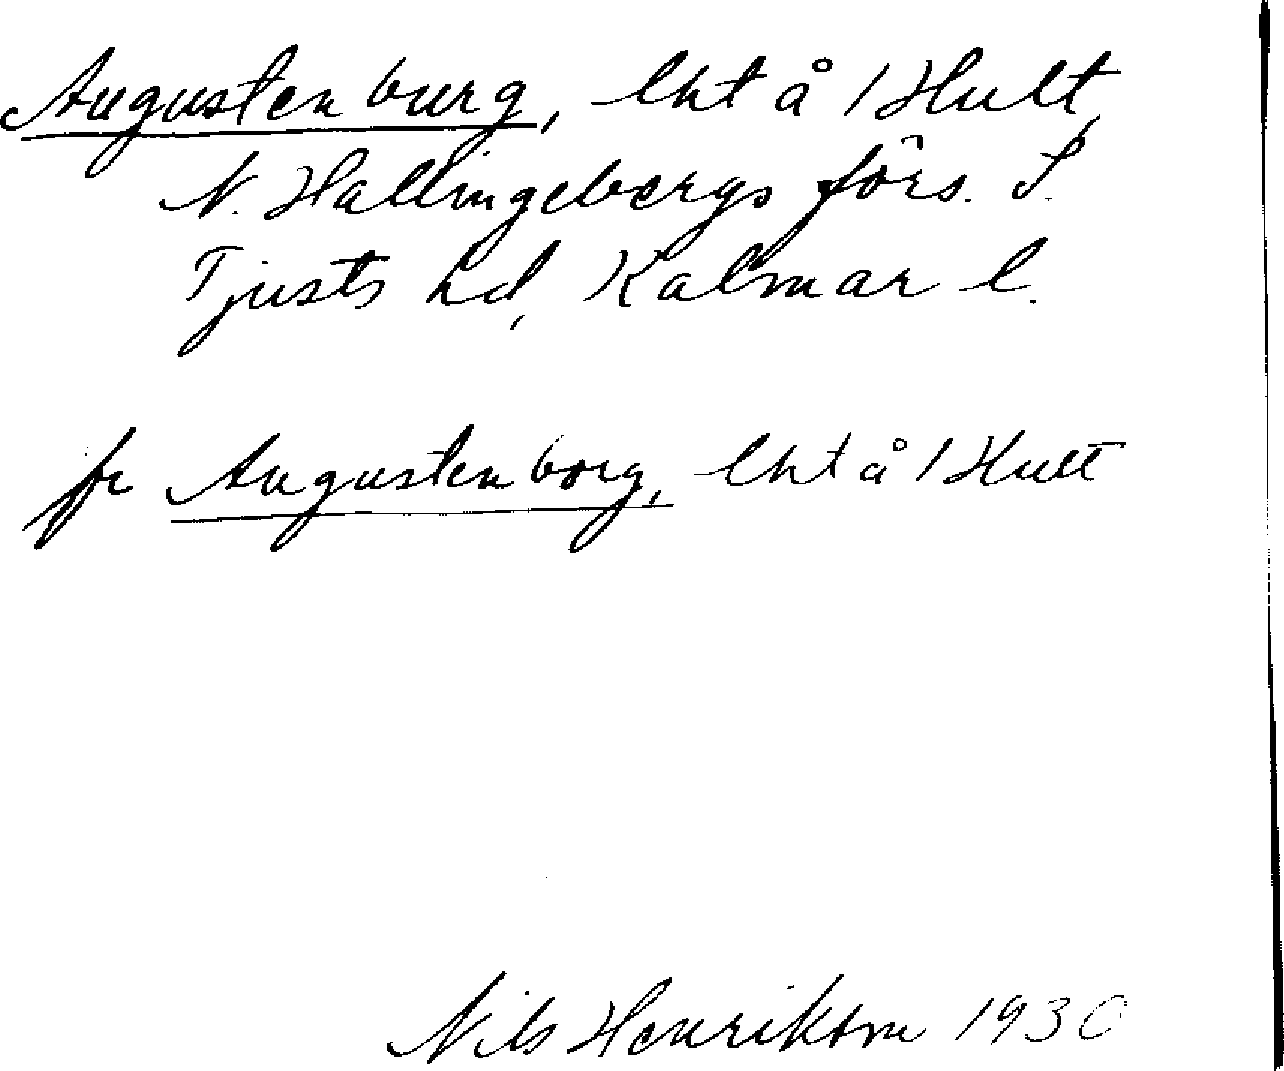 Augustenburg, lht å 1 Hult,
N. Hallingebergsförs. S.
Tjusts hd, Kalmar l.
fr Augustenborg, lht å 1 Hult
Nils Henrikson 1930